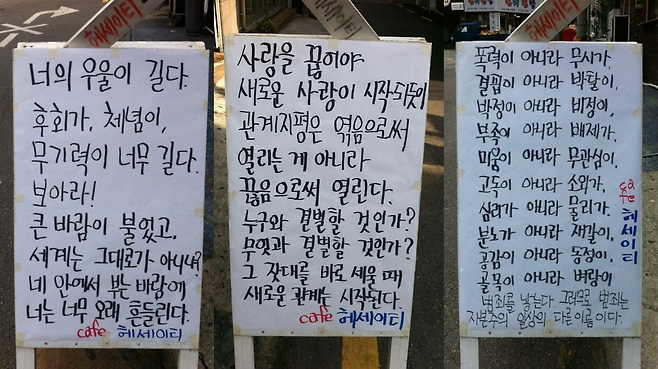 헤세이티
너의 우울이 길다.
후회가, 체념이,
무기력이 너무 길다.
보아라!
큰 바람이 불었고,
세계는 그대로가 아니냐?
네 안에서 부는 바람에
너는 너무 오래 흔들린다.
cafe 헤세이티
헤세이티
사랑을 끊어야
새로운 사랑이 시작되듯이
관계지평은 엮음으로써
열리는 게 아니라
끊음으로써 열린다.
누구와 결별할 것인가?
무엇과 결별할 것인가?
그 잣대를 바로 세울 때
새로운 관계는 시작된다.
cafe 헤세이티
폭력이 아니라 무시가,
결핍이 아니라 박탈이,
박정이 아니라 비정이,
부족이 아니라 배제가,
미움이 아니라 무관심이,
고독이 아니라 소외가,
심리가 아니라 물리가,
분노가 아니라 재갈이,
공감이 아니라 동정이,
골목이 아니라 벼랑이
범죄를 낳는다. 그러므로 범죄는
자본주의 일상의 다른 이름이다.
헤세이티